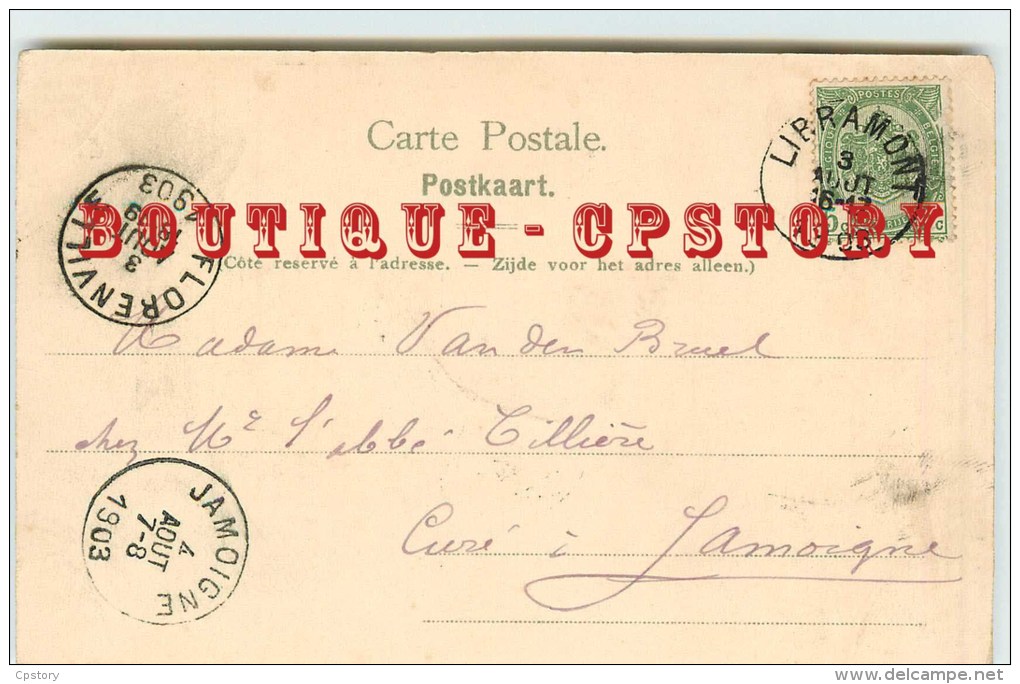 Carte Postale.
Postkaart.
BOUTIQUE - CPSTORY
(Côté réservé à l'adresse. — Zijde voor het adres alleen.)
POSTES
LIBRAMONT
3
AOUT
FLORENVILLE
3
AOUT
1903
Madame Van den Bruel
chez Mr l'abbé Tillière
Curé à Jamoigne
JAMOIGNE
4
AOUT
7-8
1903
Cpstory
delcampe.net